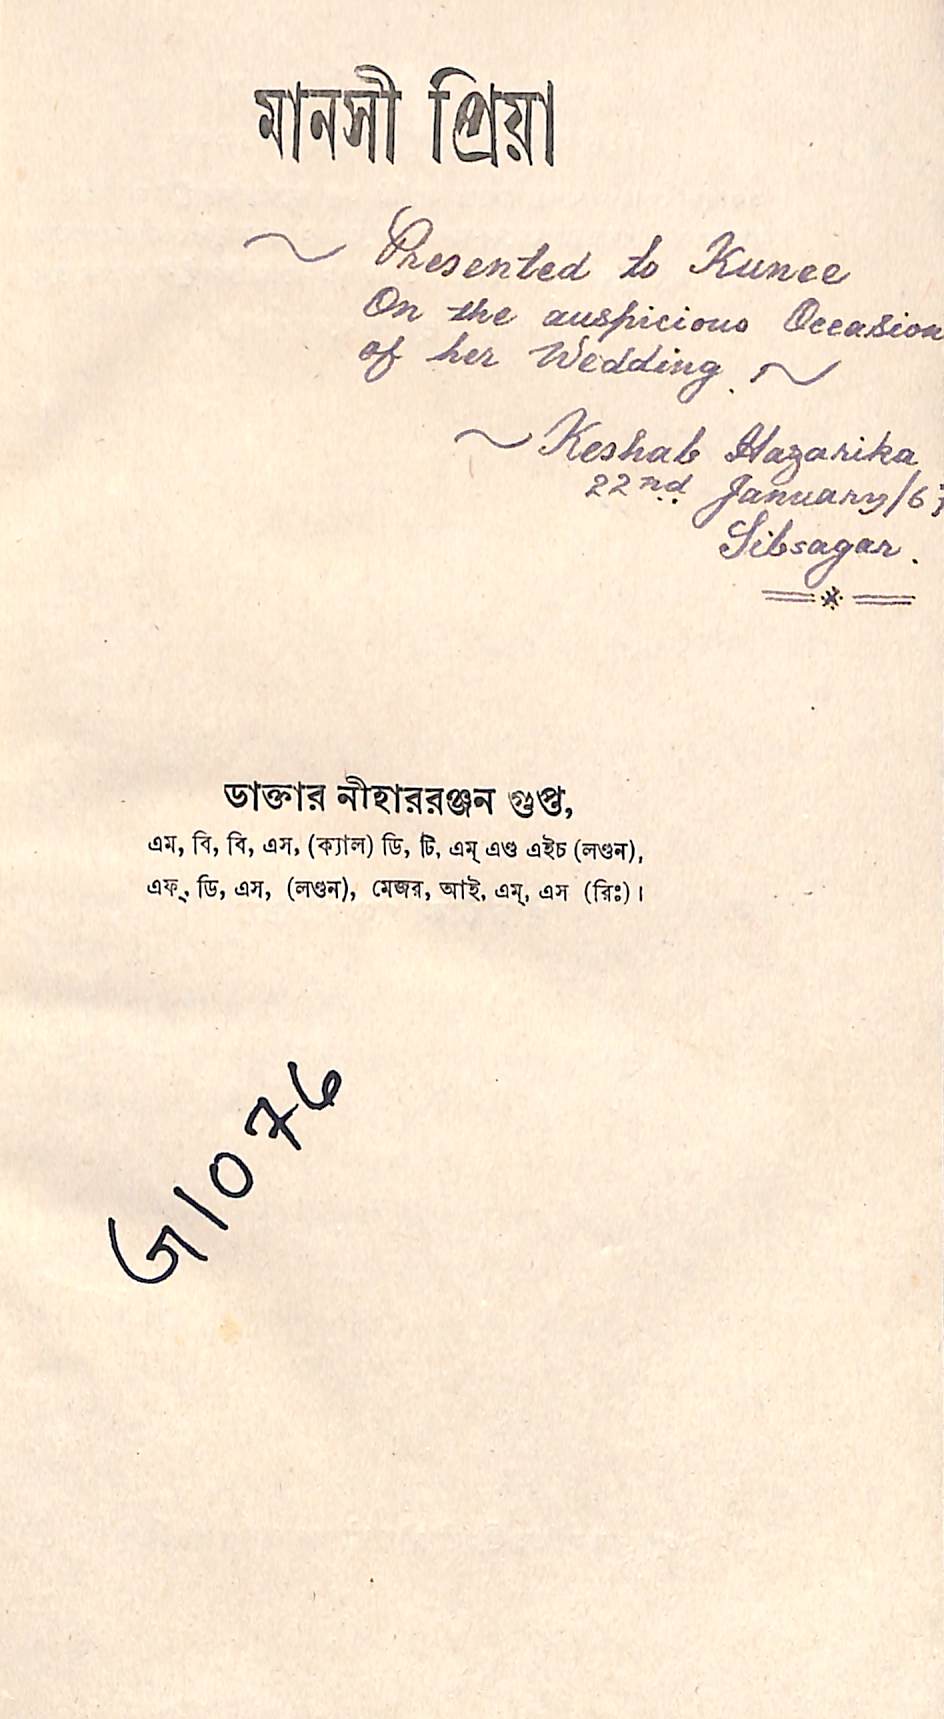 মানসী প্রিয়া
~ Presented to Kunee
On the auspicious Occasion
of her Wedding. ~
~ Keshab Hazarika
22nd January/6
Sibsagar.
ডাক্তার নীহাররঞ্জন গুপ্ত,
এম, বি, বি, এস, (ক্যাল) ডি, টি, এম্ এণ্ড এইচ (লণ্ডন),
এফ্, ডি, এস, (লণ্ডন), মেজর, আই, এম্, এস (রিঃ)।